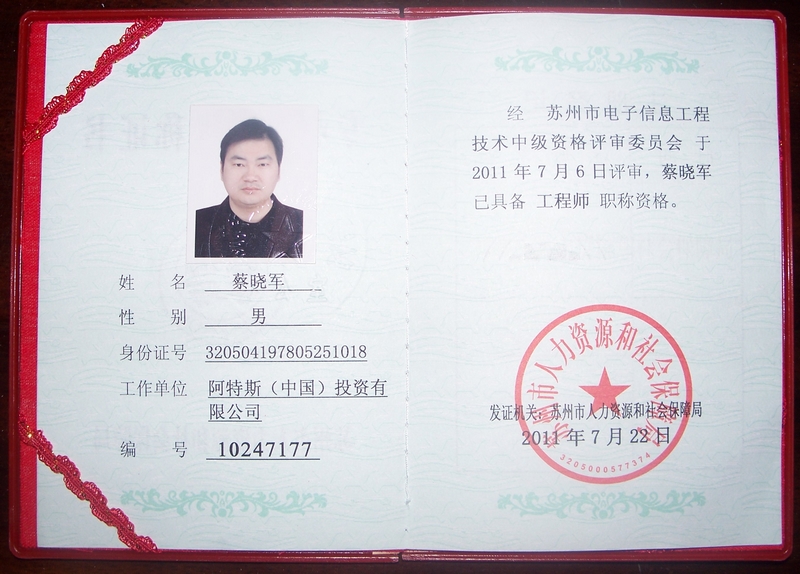 姓 名 蔡晓军
性 别 男
身份证号 320504197805251018
工作单位 阿特斯（中国）投资有
限公司
编 号 10247177
经 苏州市电子信息工程
技术中级资格评审委员会 于
2011 年 7 月 6 日评审，蔡晓军
已具备 工程师 职称资格。
苏州市人力资源和社会保障局
发证机关：苏州市人力资源和社会保障局
2011 年 7 月 22 日
3205000577374